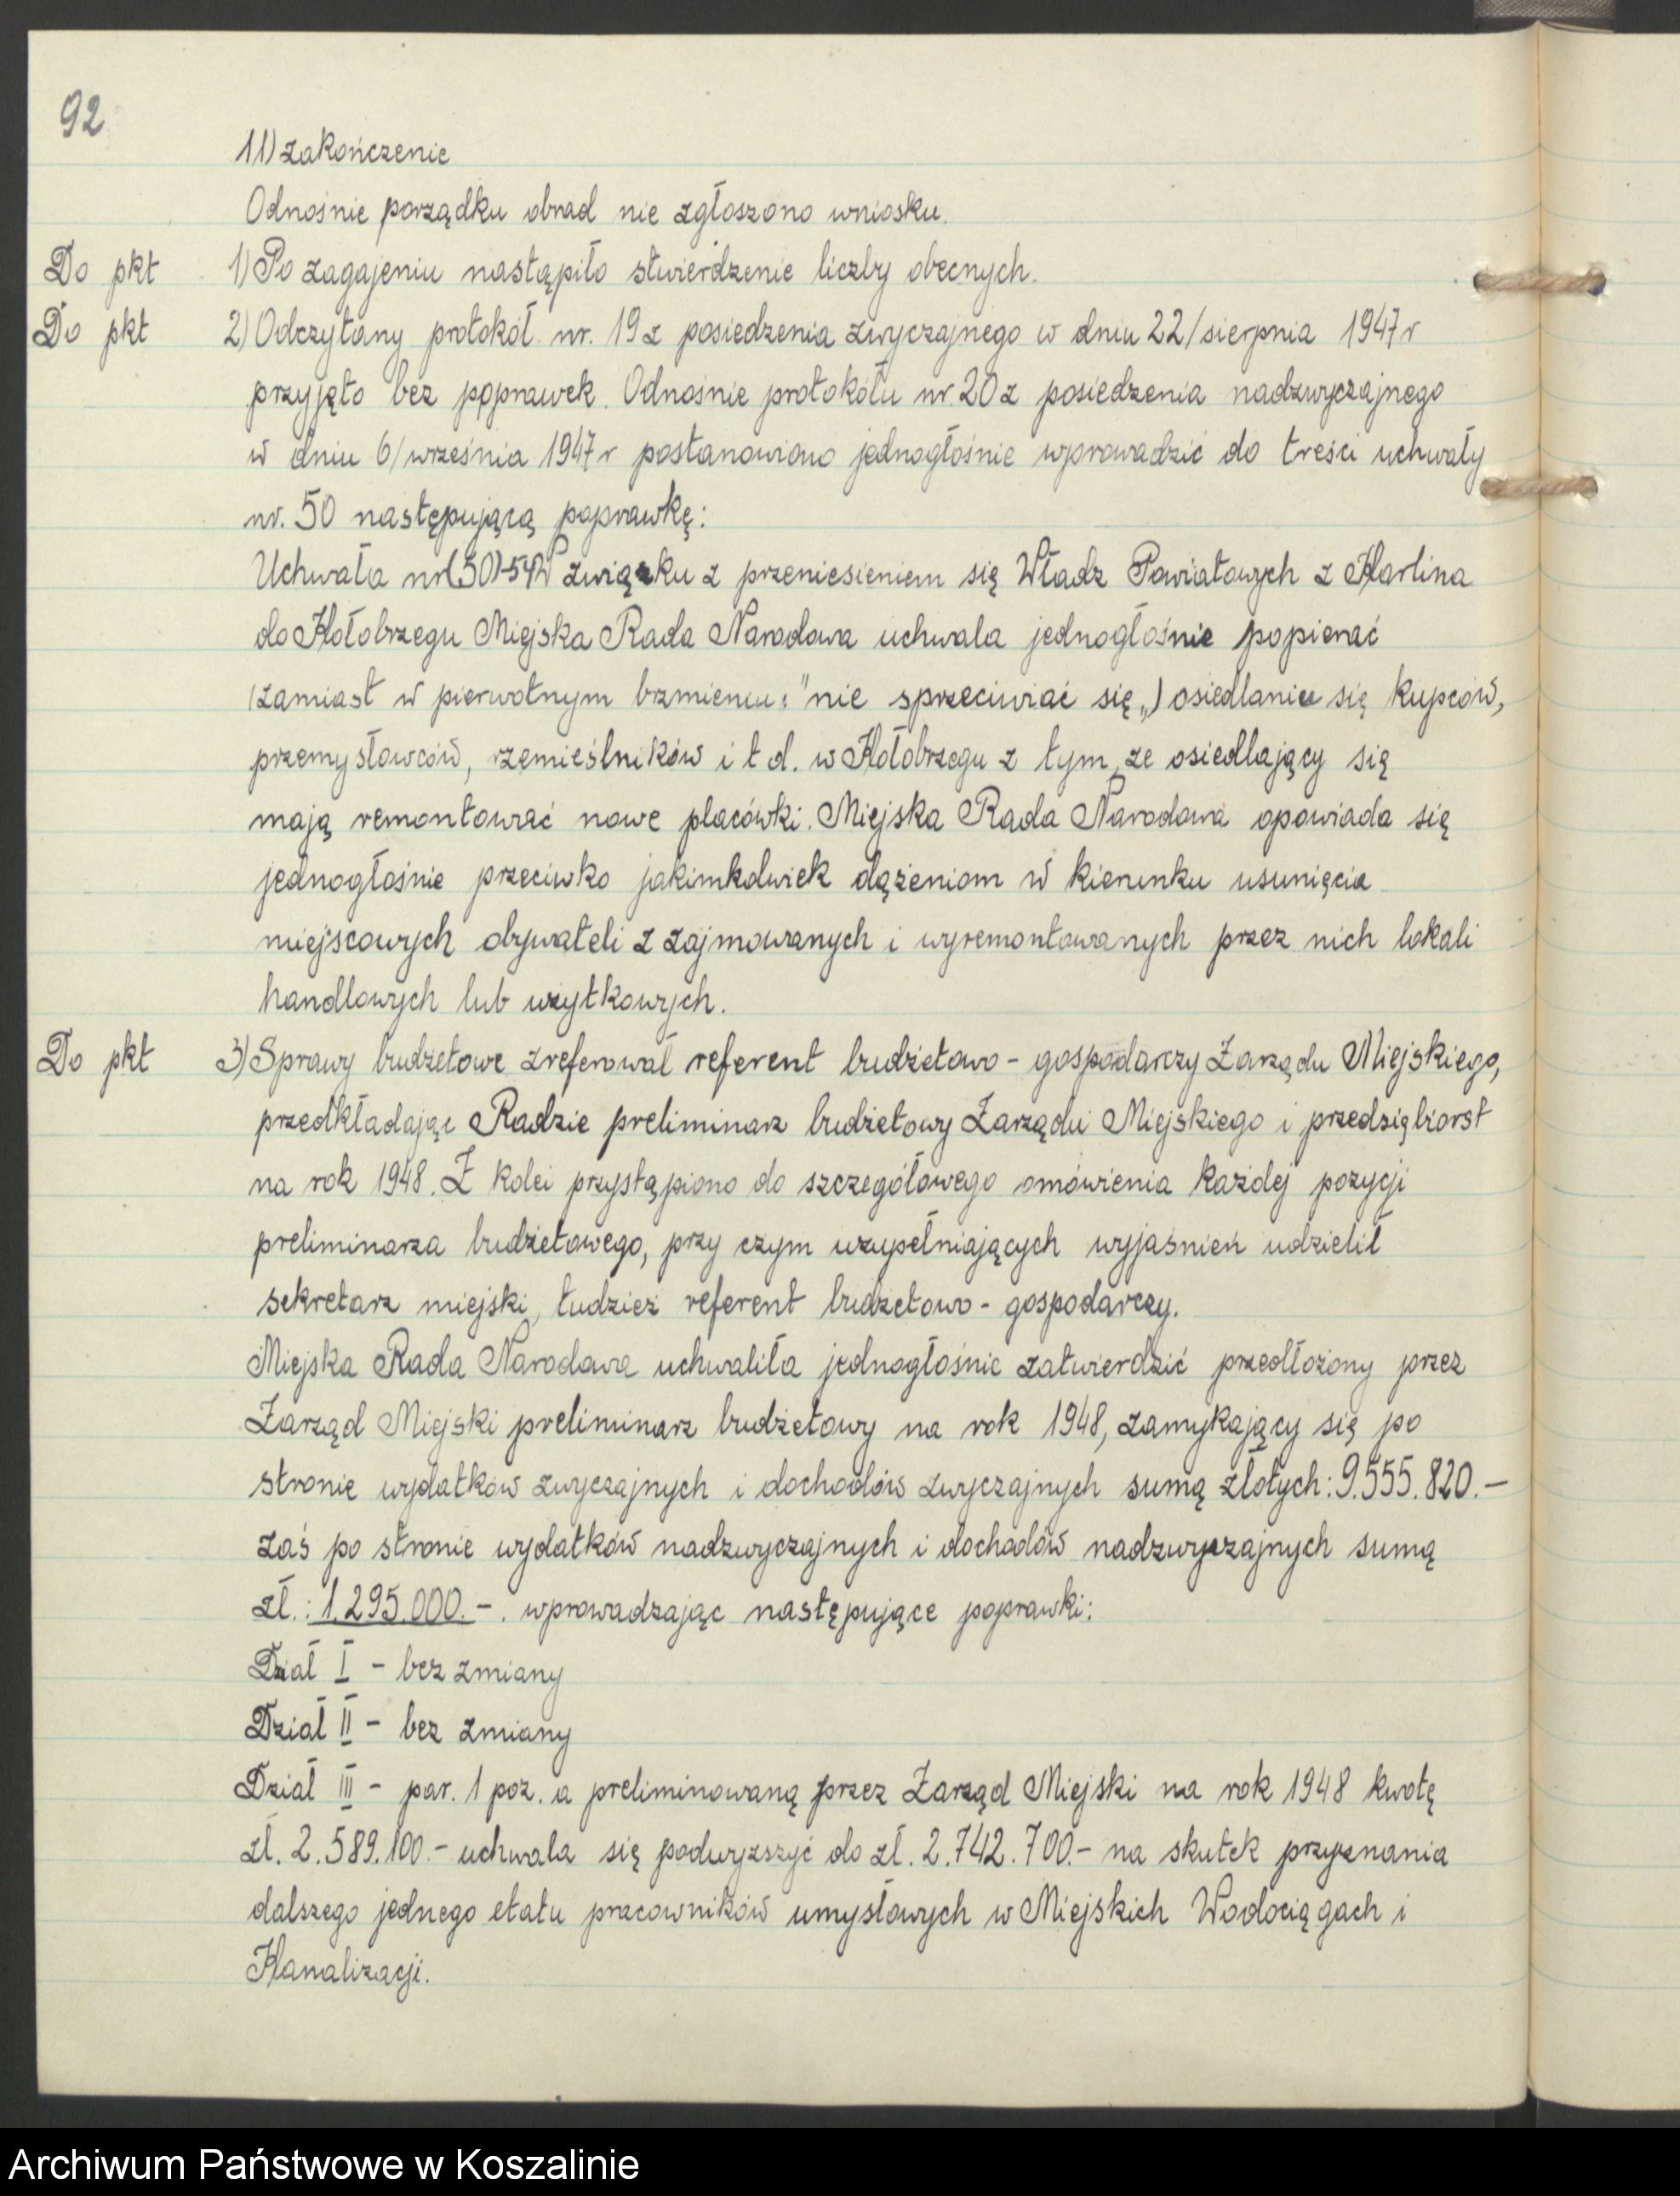 92
11) zakończenie
Odnośnie porządku obrad nie zgłoszono wniosku.
Do pkt 1) Po zagajeniu nastąpiło stwierdzenie liczby obecnych.
Do pkt 2) Odczytany protokół nr. 19 z posiedzenia zwyczajnego w dniu 22/sierpnia 1947 r
przyjęto bez poprawek. Odnośnie protokółu nr. 20 z posiedzenia nadzwyczajnego
w dniu 6/września 1947 r postanowiono jednogłośnie wprowadzić do treści uchwały
nr. 50 następującą poprawkę:
Uchwała nr (50)-54 W związku z przeniesieniem się Władz Powiatowych z Karlina
do Kołobrzegu Miejska Rada Narodowa uchwala jednogłośnie popierać
(zamiast w pierwotnym brzmieniu: "nie sprzeciwiać się„) osiedlanie się kupców,
przemysłowców, rzemieślników i t d. w Kołobrzegu z tym, ze osiedlający się
mają remontować nowe placówki. Miejska Rada Narodowa opowiada się
jednogłośnie przeciwko jakimkolwiek dążeniom w kierunku usunięcia
miejscowych obywateli z zajmowanych i wyremontowanych przez nich lokali
handlowych lub użytkowych.
Do pkt 3) Sprawy budżetowe zreferował referent budżetowo - gospodarczy Zarządu Miejskiego,
przedkładając Radzie preliminarz budżetowy Zarządu Miejskiego i przedsiębiorst
na rok 1948. Z kolei przystąpiono do szczegółowego omówienia każdej pozycji
preliminarza budżetowego, przy czym uzupełniających wyjaśnień udzielił
sekretarz miejski, tudzież referent budżetowo - gospodarczy.
Miejska Rada Narodowa uchwaliła jednogłośnie zatwierdzić przedłożony przez
Zarząd Miejski preliminarz budżetowy na rok 1948, zamykający się po
stronie wydatków zwyczajnych i dochodów zwyczajnych sumą złotych: 9.555.820.-
zaś po stronie wydatków nadzwyczajnych i dochodów nadzwyczajnych sumą
zł.: 1.295.000.-. wprowadzając następujące poprawki:
Dział I - bez zmiany
Dział II - bez zmiany
Dział III - par. 1 poz. a preliminowaną przez Zarząd Miejski na rok 1948 kwotę
zł. 2.589.100.- uchwala się podwyższyć do zł. 2.742.700.- na skutek przyznania
dalszego jednego etatu pracowników umysłowych w Miejskich Wodociągach i
Kanalizacji.
Archiwum Państwowe w Koszalinie